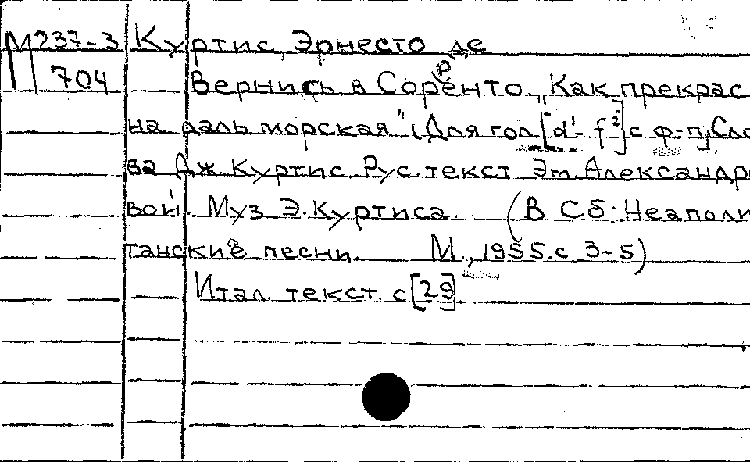 М237-3 Куртис, Эрнесто де
704 Вернись в Сорренто „Как прекрас
на даль морская" (Для гол [d¹-f²] с ф-п) Сло
ва Дж Куртис. Рус. текст Эт. Александро
вой. Муз Э. Куртиса. (В сб: Неаполи
танские песни. М., 1955. с 3-5)
Итал текст с [29]